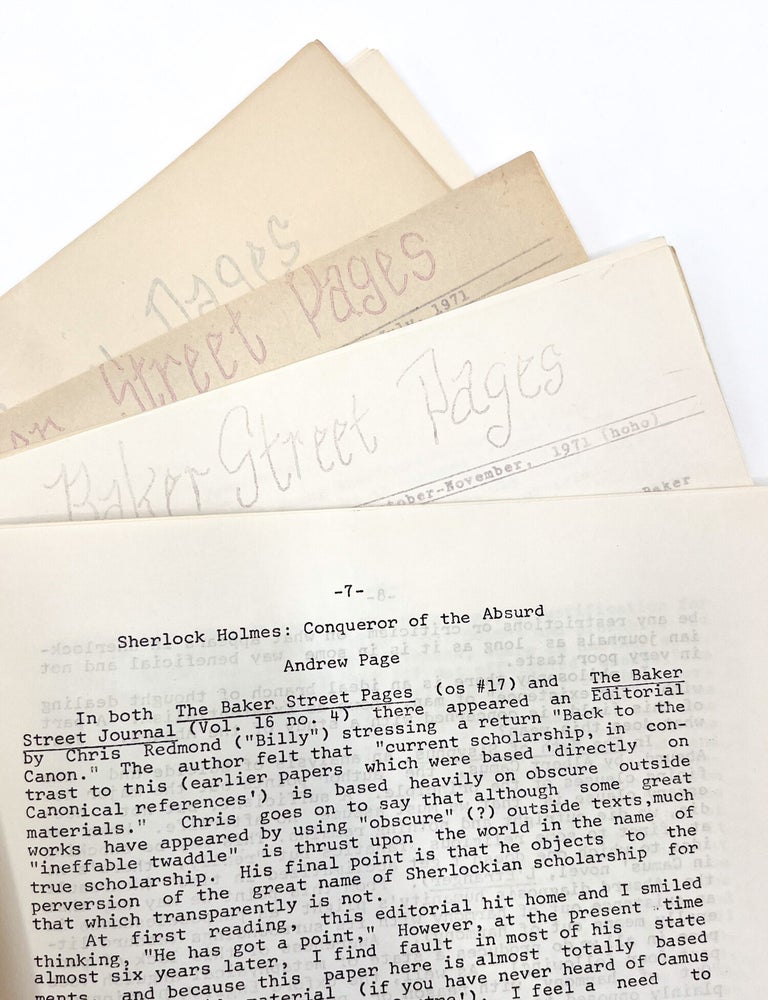 Pages
Street Pages
July, 1971
Baker Street Pages
October-November, 1971 (hoho)
Baker
-7-
Sherlock Holmes: Conqueror of the Absurd
Andrew Page
In both The Baker Street Pages (os #17) and The Baker
Street Journal (Vol. 16 no. 4) there appeared an Editorial
by Chris Redmond ("Billy") stressing a return "Back to the
Canon." The author felt that "current scholarship, in con-
trast to tnis (earlier papers which were based 'directly on
Canonical references') is based heavily on obscure outside
materials." Chris goes on to say that although some great
works have appeared by using "obscure" (?) outside texts,much
"ineffable twaddle" is thrust upon the world in the name of
true scholarship. His final point is that he objects to the
perversion of the great name of Sherlockian scholarship for
that which transparently is not.
At first reading, this editorial hit home and I smiled
thinking, "He has got a point," However, at the present time
almost six years later, I find fault in most of his state
ments and because this paper here is almost totally based
material (if you have never heard of Camus
I feel a need to